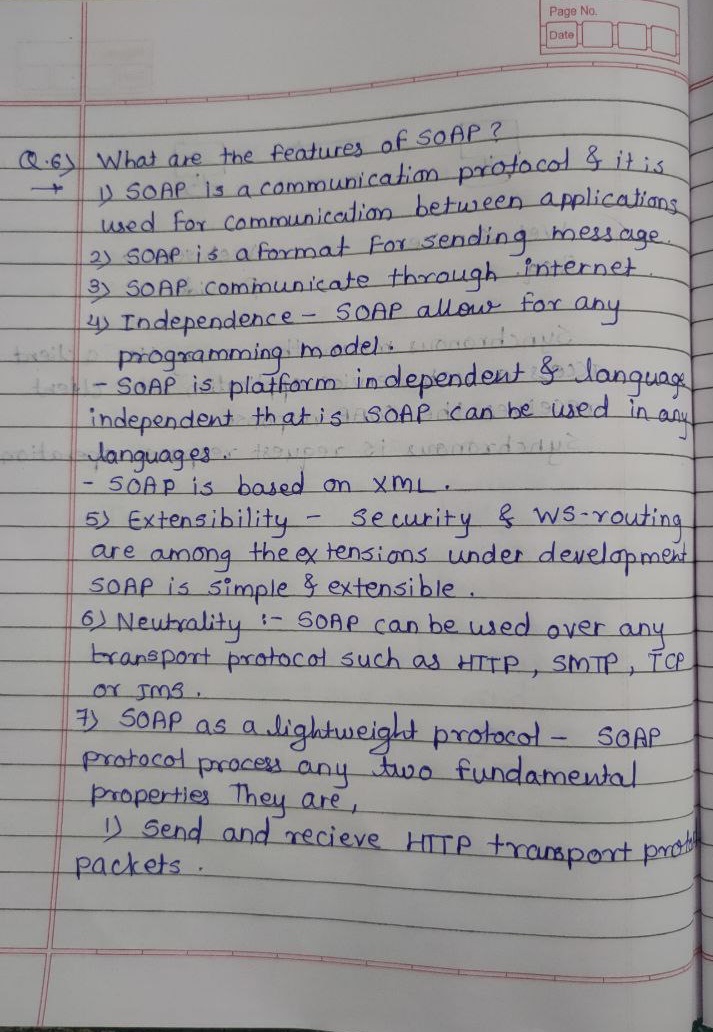 Page No.
Date
Q.6) What are the features of SOAP?
→ 1) SOAP is a communication protocol & it is
used for communication between applications
2) SOAP is a format for sending message.
3) SOAP communicate through internet.
4) Independence - SOAP allow for any
programming model.
- SOAP is platform independent & language
independent that is SOAP can be used in any
languages.
- SOAP is based on XML.
5) Extensibility - Security & WS-routing
are among the extensions under development
SOAP is simple & extensible.
6) Neutrality :- SOAP can be used over any
transport protocol such as HTTP, SMTP, TCP
or JMS.
7) SOAP as a lightweight protocol - SOAP
protocol process any two fundamental
properties They are,
1) Send and recieve HTTP transport
packets.